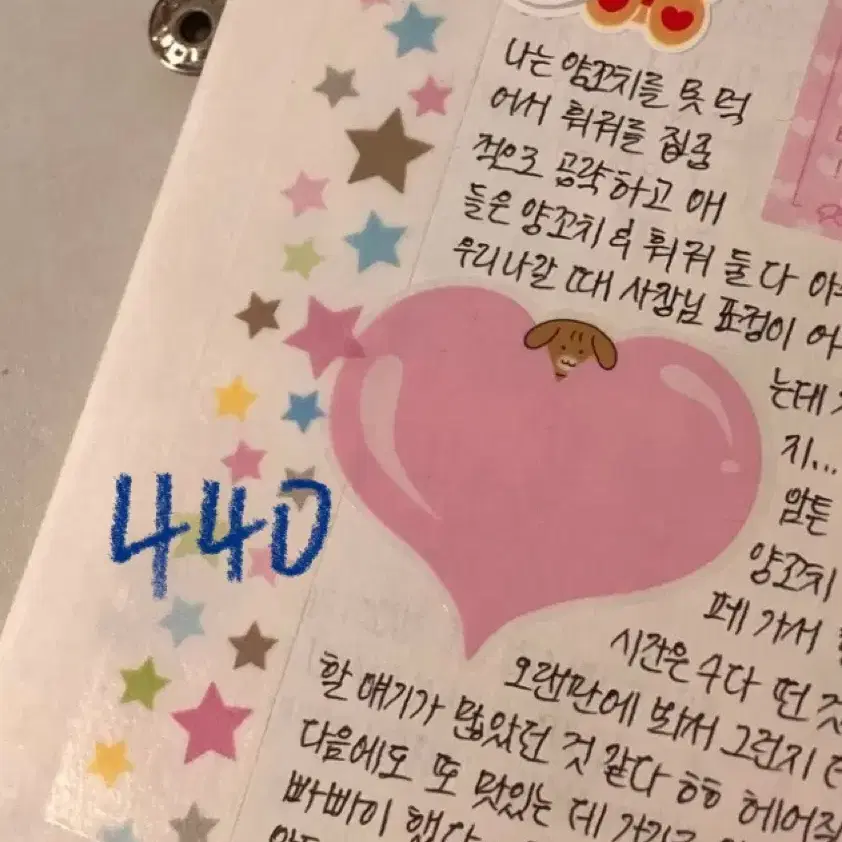 나는 양꼬치를 못 먹
어서 훠궈를 집중
적으로 공략하고 애
들은 양꼬치 & 훠궈 둘 다
우리 나갈 때 사장님 표정이
는데
지...
암튼
양꼬치
페 가서
시간은 수다 떤 것
오랜만에 봐서 그런지
할 얘기가 많았던 것 같다 ㅎㅎ 헤어질
다음에도 또 맛있는 데 가기로
빠빠이 했다
440